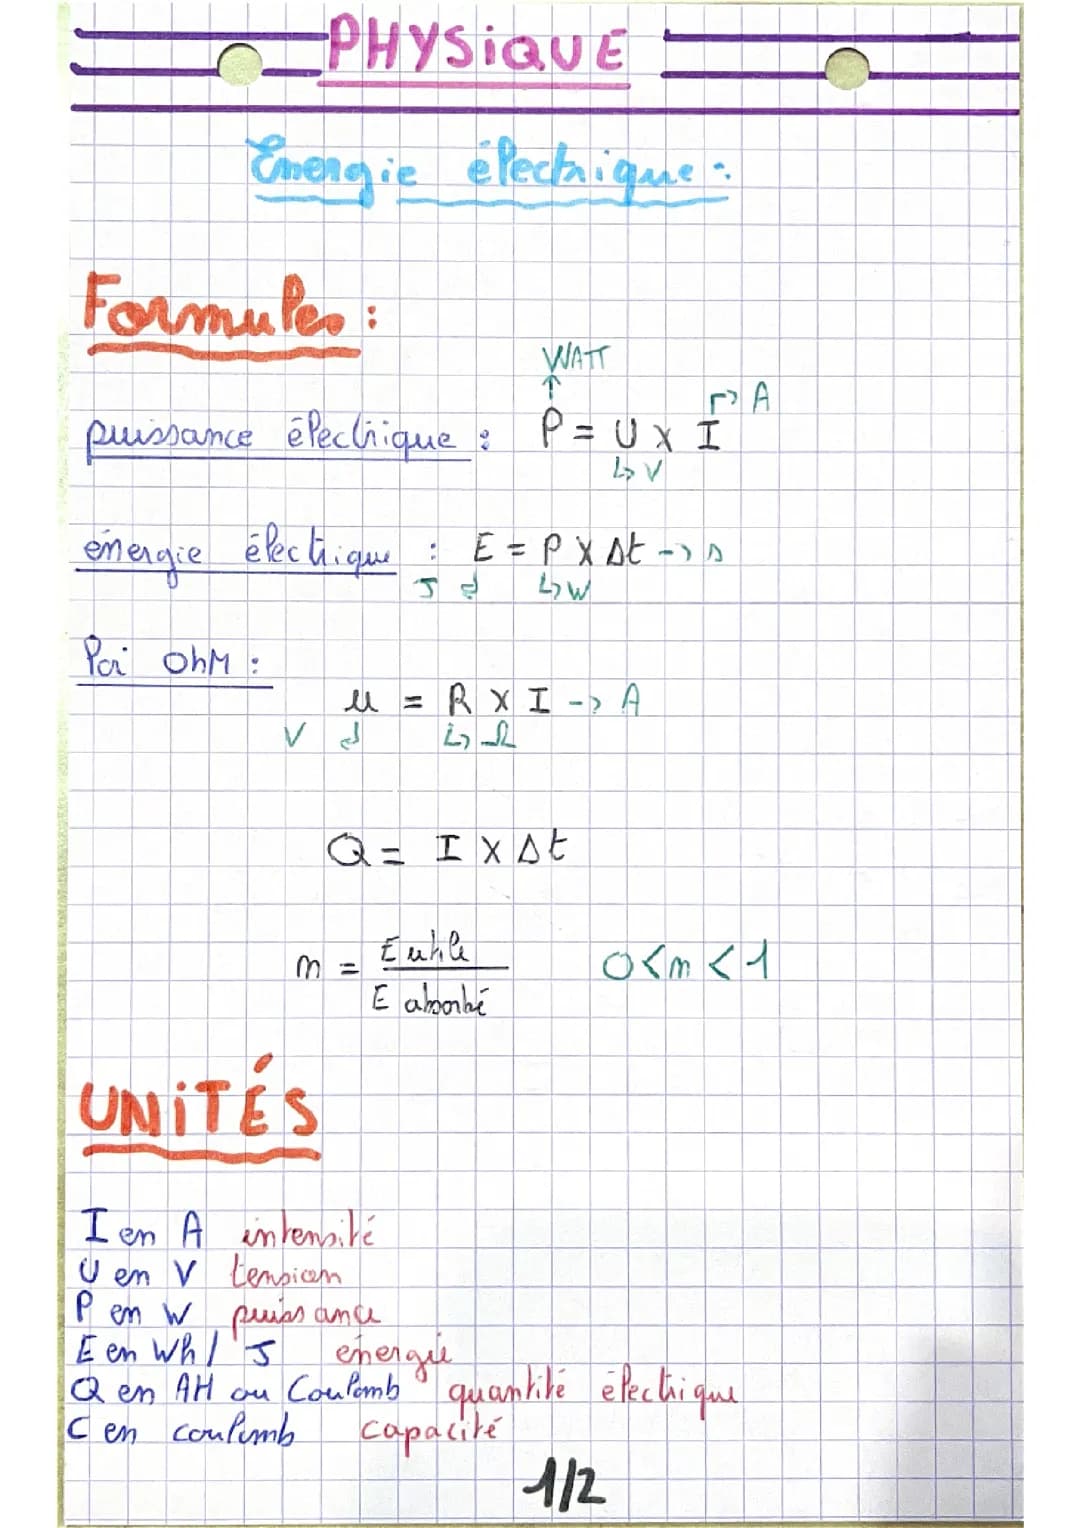 PHYSiQUE
Energie électrique :
Formules :
WATT
puissance électrique : P = U X I
↳ A
↳ V
énergie électrique : E = P X Δt -> s
J ↲ ↳ W
Loi OhM :
u = R X I -> A
V ↲ ↳ Ω
Q = I X Δt
n = E utile / E absorbé 0 < n < 1
UNiTÉS
I en A intensité
U en V tension
P en W puissance
E en Wh / J énergie
Q en AH ou Coulomb quantité électrique
C en coulomb capacité
1/2